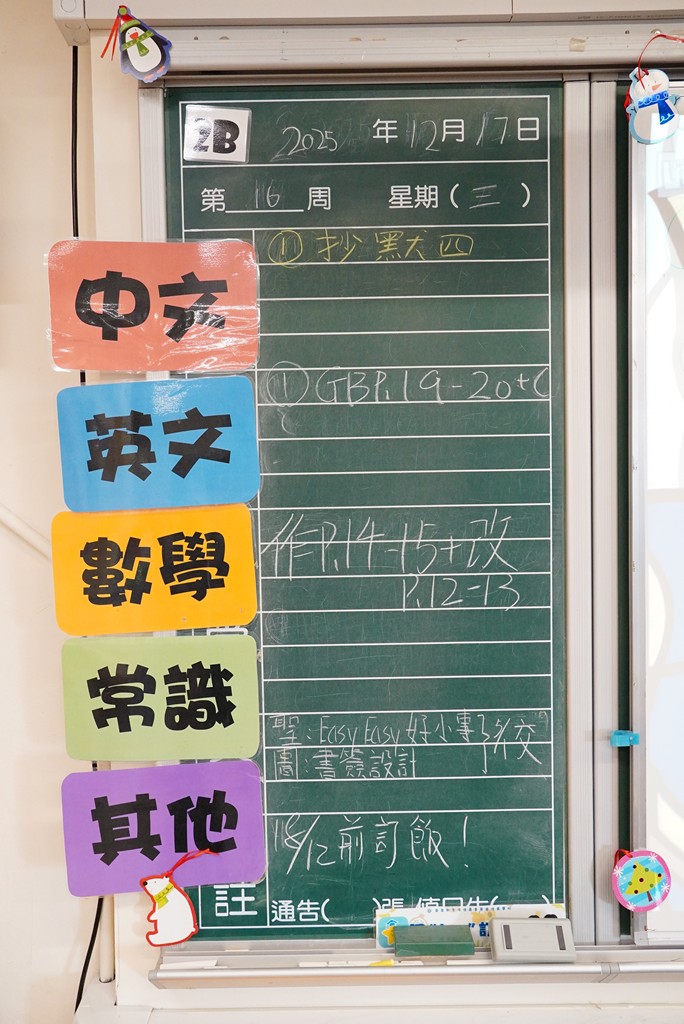 2B 2025 年 12 月 17 日
第 16 周 星期 ( 三 )
中文
① 抄默四
英文
① GB P.19-20+C
數學
作P.14-15+改
P.12-13
常識
聖:Easy Easy 好小事
圖:書簽設計
交
其他
18/12前訂飯!
註 通告( )張